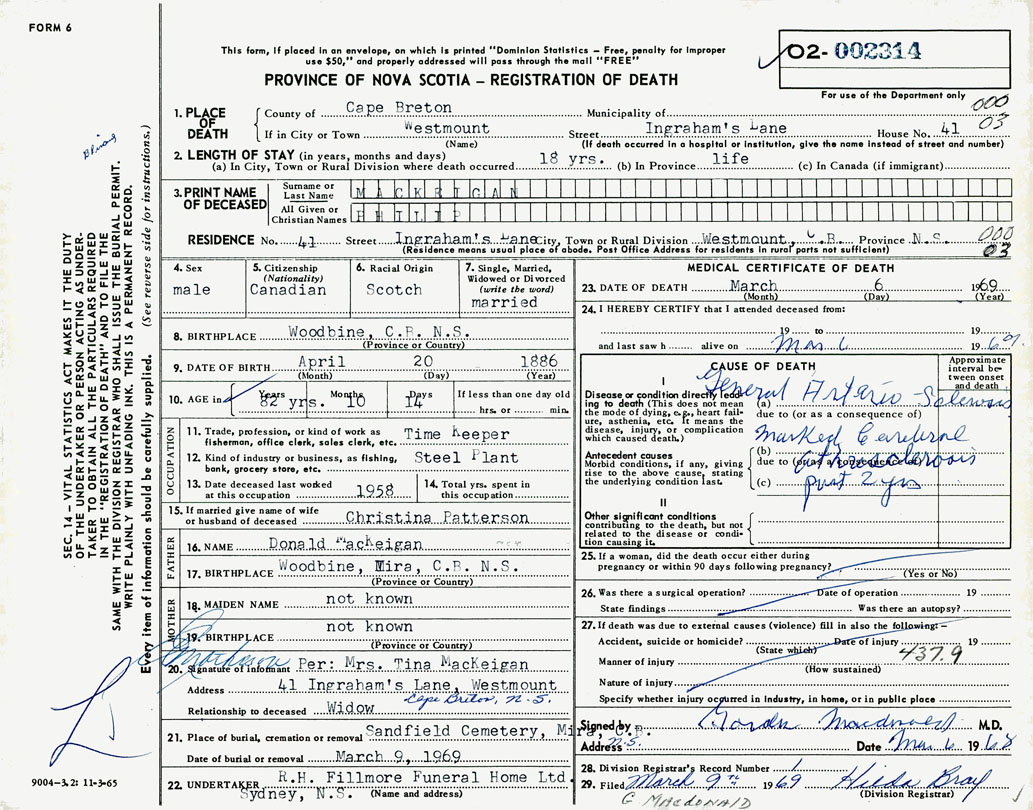 FORM 6
This form, if placed in an envelope, on which is printed "Dominion Statistics – Free, penalty for improper
use $50," and properly addressed will pass through the mail "FREE"
PROVINCE OF NOVA SCOTIA – REGISTRATION OF DEATH
O2- 002314
For use of the Department only
000
03
1. PLACE OF DEATH
County of Cape Breton Municipality of
If in City or Town Westmount Street Ingraham's Lane House No. 41
(Name) (If death occurred in a hospital or institution, give the name instead of street and number)
2. LENGTH OF STAY (in years, months and days)
(a) In City, Town or Rural Division where death occurred 18 yrs. (b) In Province life (c) In Canada (if immigrant)
3. PRINT NAME OF DECEASED
Surname or Last Name MACKEIGAN
All Given or Christian Names PHILIP
RESIDENCE No. 41 Street Ingraham's Lane City, Town or Rural Division Westmount, C.B. Province N.S.
000
03
(Residence means usual place of abode. Post Office Address for residents in rural parts not sufficient)
4. Sex
male
5. Citizenship
(Nationality)
Canadian
6. Racial Origin
Scotch
7. Single, Married, Widowed or Divorced
(write the word)
married
8. BIRTHPLACE Woodbine, C.B. N.S.
(Province or Country)
9. DATE OF BIRTH April 20 1886
(Month) (Day) (Year)
10. AGE in Years Months Days If less than one day old
82 yrs. 10 14 hrs. or min.
OCCUPATION
11. Trade, profession, or kind of work as
fisherman, office clerk, sales clerk, etc. Time Keeper
12. Kind of industry or business, as fishing,
bank, grocery store, etc. Steel Plant
13. Date deceased last worked
at this occupation 1958
14. Total yrs. spent in
this occupation
15. If married give name of wife
or husband of deceased Christina Patterson
FATHER
16. NAME Donald MacKeigan
17. BIRTHPLACE Woodbine, Mira, C.B. N.S.
(Province or Country)
MOTHER
18. MAIDEN NAME not known
19. BIRTHPLACE not known
(Province or Country)
20. Signature of informant Per: Mrs. Tina MacKeigan
Address 41 Ingraham's Lane, Westmount
Cape Breton, N.S.
Relationship to deceased Widow
21. Place of burial, cremation or removal Sandfield Cemetery, Mira, C.B.
Date of burial or removal March 9, 1969
22. UNDERTAKER R.H. Fillmore Funeral Home Ltd.
Sydney, N.S. (Name and address)
MEDICAL CERTIFICATE OF DEATH
23. DATE OF DEATH March 6 1969
(Month) (Day) (Year)
24. I HEREBY CERTIFY that I attended deceased from:
19 to 19
and last saw h alive on Mar 6 1969.
CAUSE OF DEATH
Approximate interval between onset and death
I
Disease or condition directly leading to death (This does not mean the mode of dying, e.g., heart failure, asthenia, etc. It means the disease, injury, or complication which caused death.)
(a) General Arterio-Sclerosis
due to (or as a consequence of)
Marked Cerebral
Antecedent causes
Morbid conditions, if any, giving rise to the above cause, stating the underlying condition last.
(b)
due to (or as a consequence of)
(c) past 2 yrs
II
Other significant conditions
contributing to the death, but not related to the disease or condition causing it.
25. If a woman, did the death occur either during
pregnancy or within 90 days following pregnancy?
(Yes or No)
26. Was there a surgical operation? Date of operation 19
State findings Was there an autopsy?
27. If death was due to external causes (violence) fill in also the following:–
Accident, suicide or homicide? Date of injury 19
(State which) 437.9
Manner of injury
(How sustained)
Nature of injury
Specify whether injury occurred in industry, in home, or in public place
Signed by M.D.
Address N.S. Date Mar 6 1968
28. Division Registrar's Record Number 1
29. Filed March 9th 1969 Hilda Bray
(Division Registrar)
G MACDONALD
SEC. 14 – VITAL STATISTICS ACT MAKES IT THE DUTY
OF THE UNDERTAKER OR PERSON ACTING AS UNDER-
TAKER TO OBTAIN ALL THE PARTICULARS REQUIRED
IN THE "REGISTRATION OF DEATH" AND TO FILE THE
SAME WITH THE DIVISION REGISTRAR WHO SHALL ISSUE THE BURIAL PERMIT.
WRITE PLAINLY WITH UNFADING INK. THIS IS A PERMANENT RECORD.
Every item of information should be carefully supplied. (See reverse side for instructions.)
9004-3.2: 11-3-65